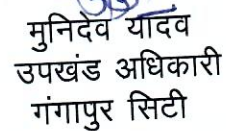 मुनिदेव यादव
उपखंड अधिकारी
गंगापुर सिटी